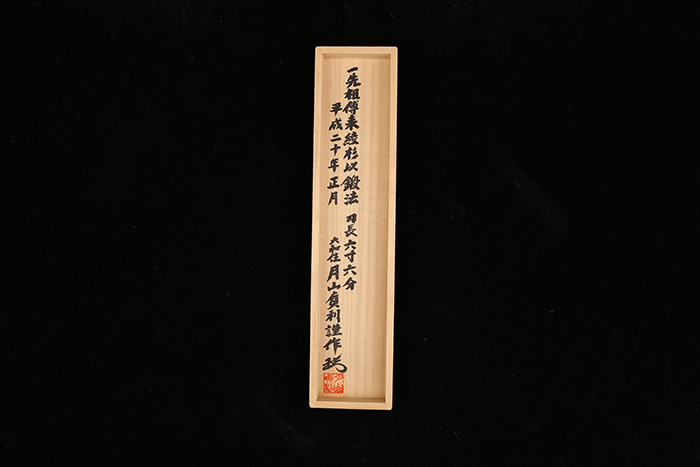 一先祖傳来綾杉以鍛法 刃長六寸六分
平成二十年正月
大和住月山貞利謹作